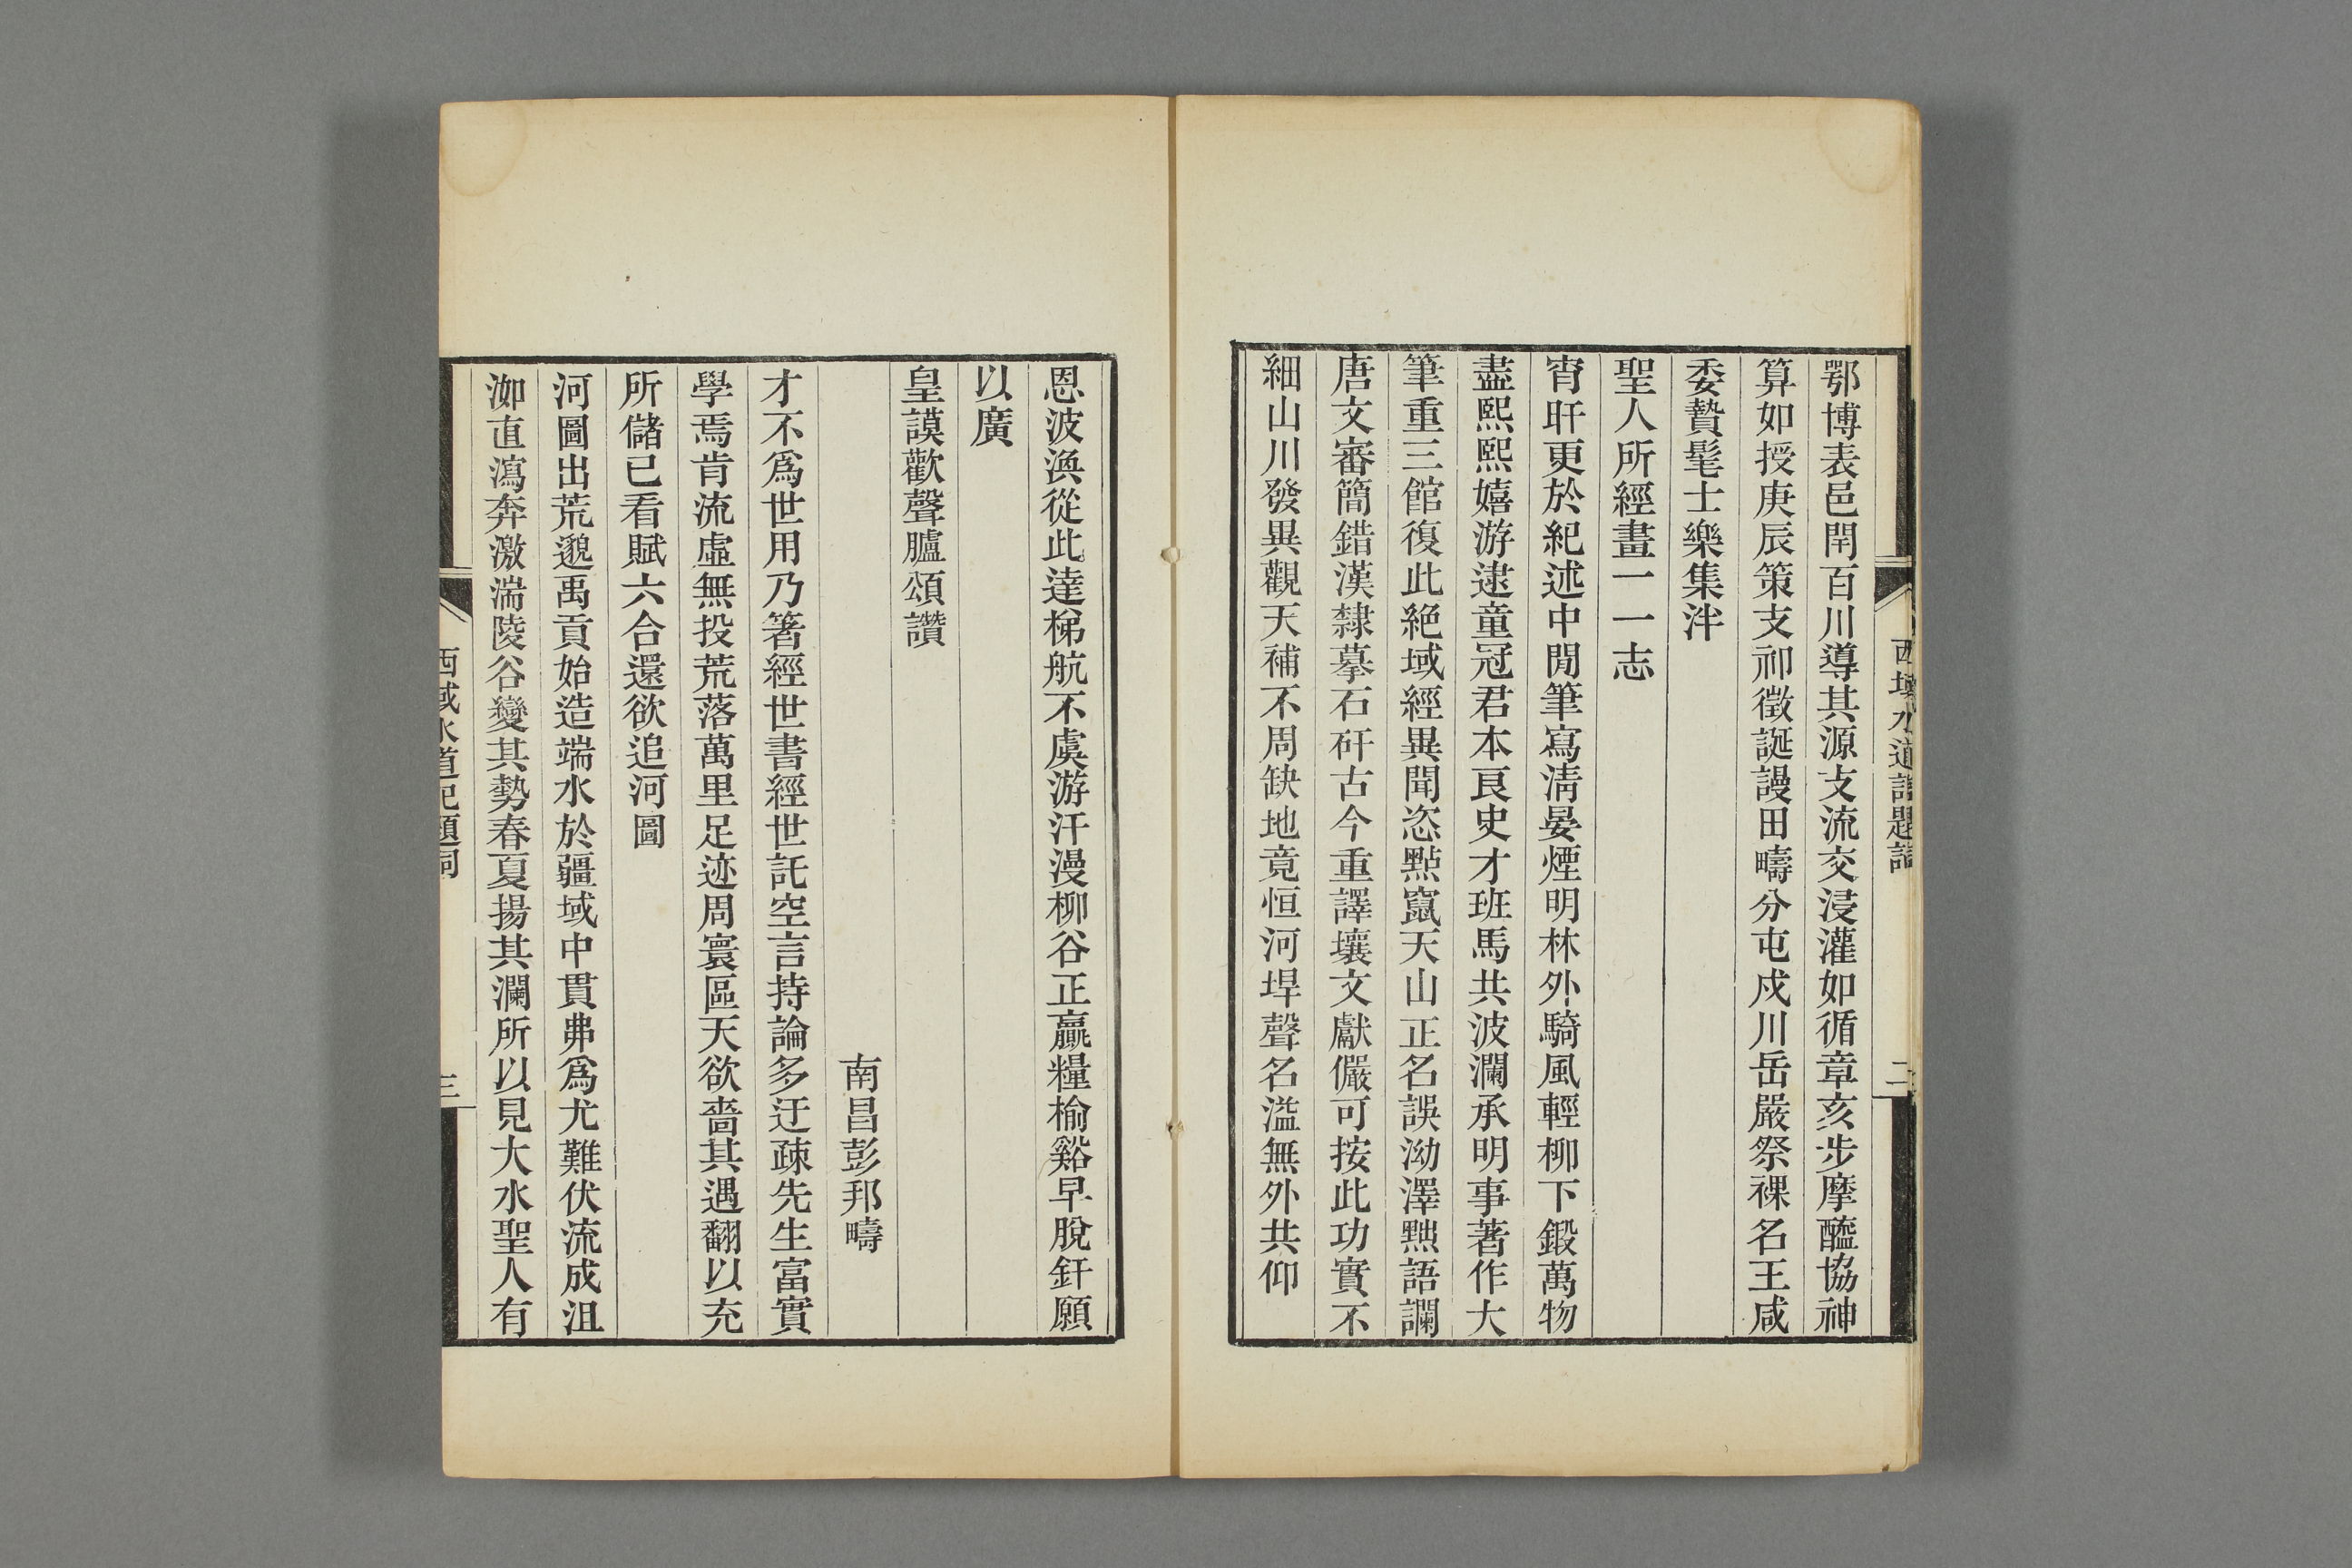 鄂博表邑閈百川導其源支流交浸灌如循章亥步摩醯協神
算如授庚辰策支祁徵誕謾田疇分屯戍川岳嚴祭祼名王咸
委贄髦士樂集泮
聖人所經畫一一志
宵旰更於紀述中閒筆寫淸晏煙明林外騎風輕柳下鍛萬物
盡熙熙嬉游逮童冠君本良史才班馬共波瀾承明事著作大
筆重三館復此絕域經異聞恣㸃竄天山正名誤泑澤㸃語讕
唐文審簡錯漢隸摹石矸古今重譯壤文獻儼可按此功實不
細山川發異觀天補不周缺地竟恒河垾聲名溢無外共仰
恩波渙從此達梯航不虞游汗漫柳谷正贏糧榆谿早脫釬願
以廣
皇謨歡聲臚頌讚
南昌彭邦疇
才不爲世用乃箸經世書經世託空言持論多迂疎先生富實
學焉肯流虛無投荒落萬里足迹周寰區天欲嗇其遇翻以充
所儲已看賦六合還欲追河圖
河圖出荒邈禹貢始造端水於疆域中貫弗爲尤難伏流成沮
洳直瀉奔激湍陵谷變其勢春夏揚其瀾所以見大水聖人有
西域水道記題詞
三